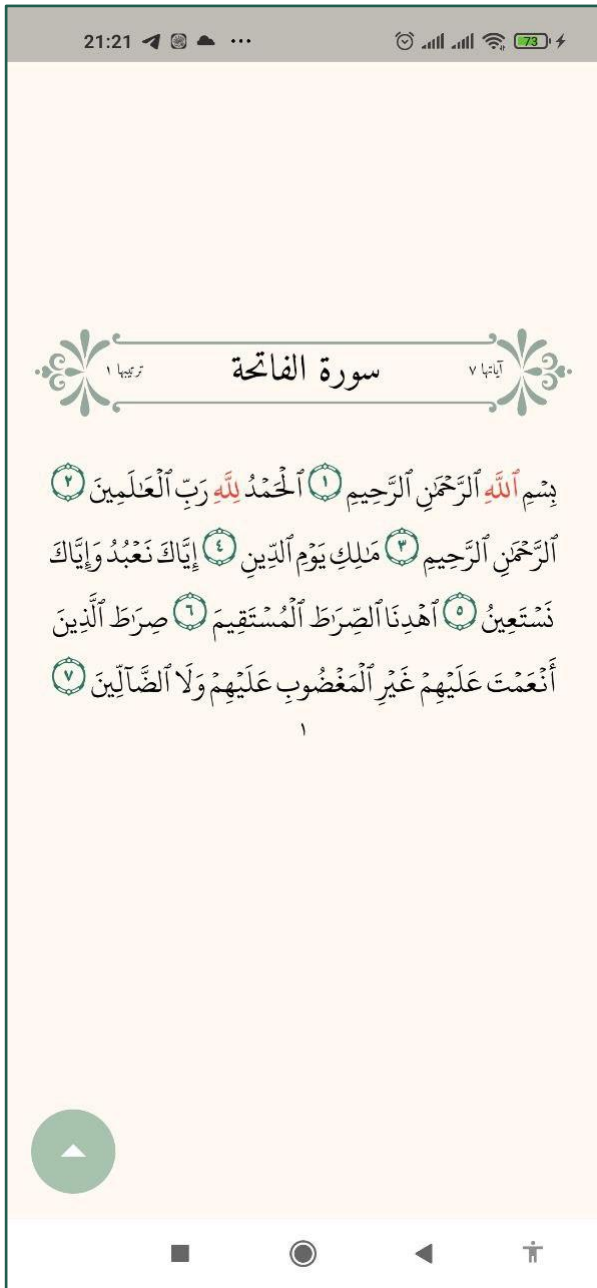 21:21 ... 73
آياتها ٧ سورة الفاتحة ترتيبها ١
بِسْمِ ٱللَّهِ ٱلرَّحْمَٰنِ ٱلرَّحِيمِ ١ ٱلْحَمْدُ لِلَّهِ رَبِّ ٱلْعَٰلَمِينَ ٢
ٱلرَّحْمَٰنِ ٱلرَّحِيمِ ٣ مَٰلِكِ يَوْمِ ٱلدِّينِ ٤ إِيَّاكَ نَعْبُدُ وَإِيَّاكَ
نَسْتَعِينُ ٥ ٱهْدِنَا ٱلصِّرَٰطَ ٱلْمُسْتَقِيمَ ٦ صِرَٰطَ ٱلَّذِينَ
أَنْعَمْتَ عَلَيْهِمْ غَيْرِ ٱلْمَغْضُوبِ عَلَيْهِمْ وَلَا ٱلضَّآلِّينَ ٧
١